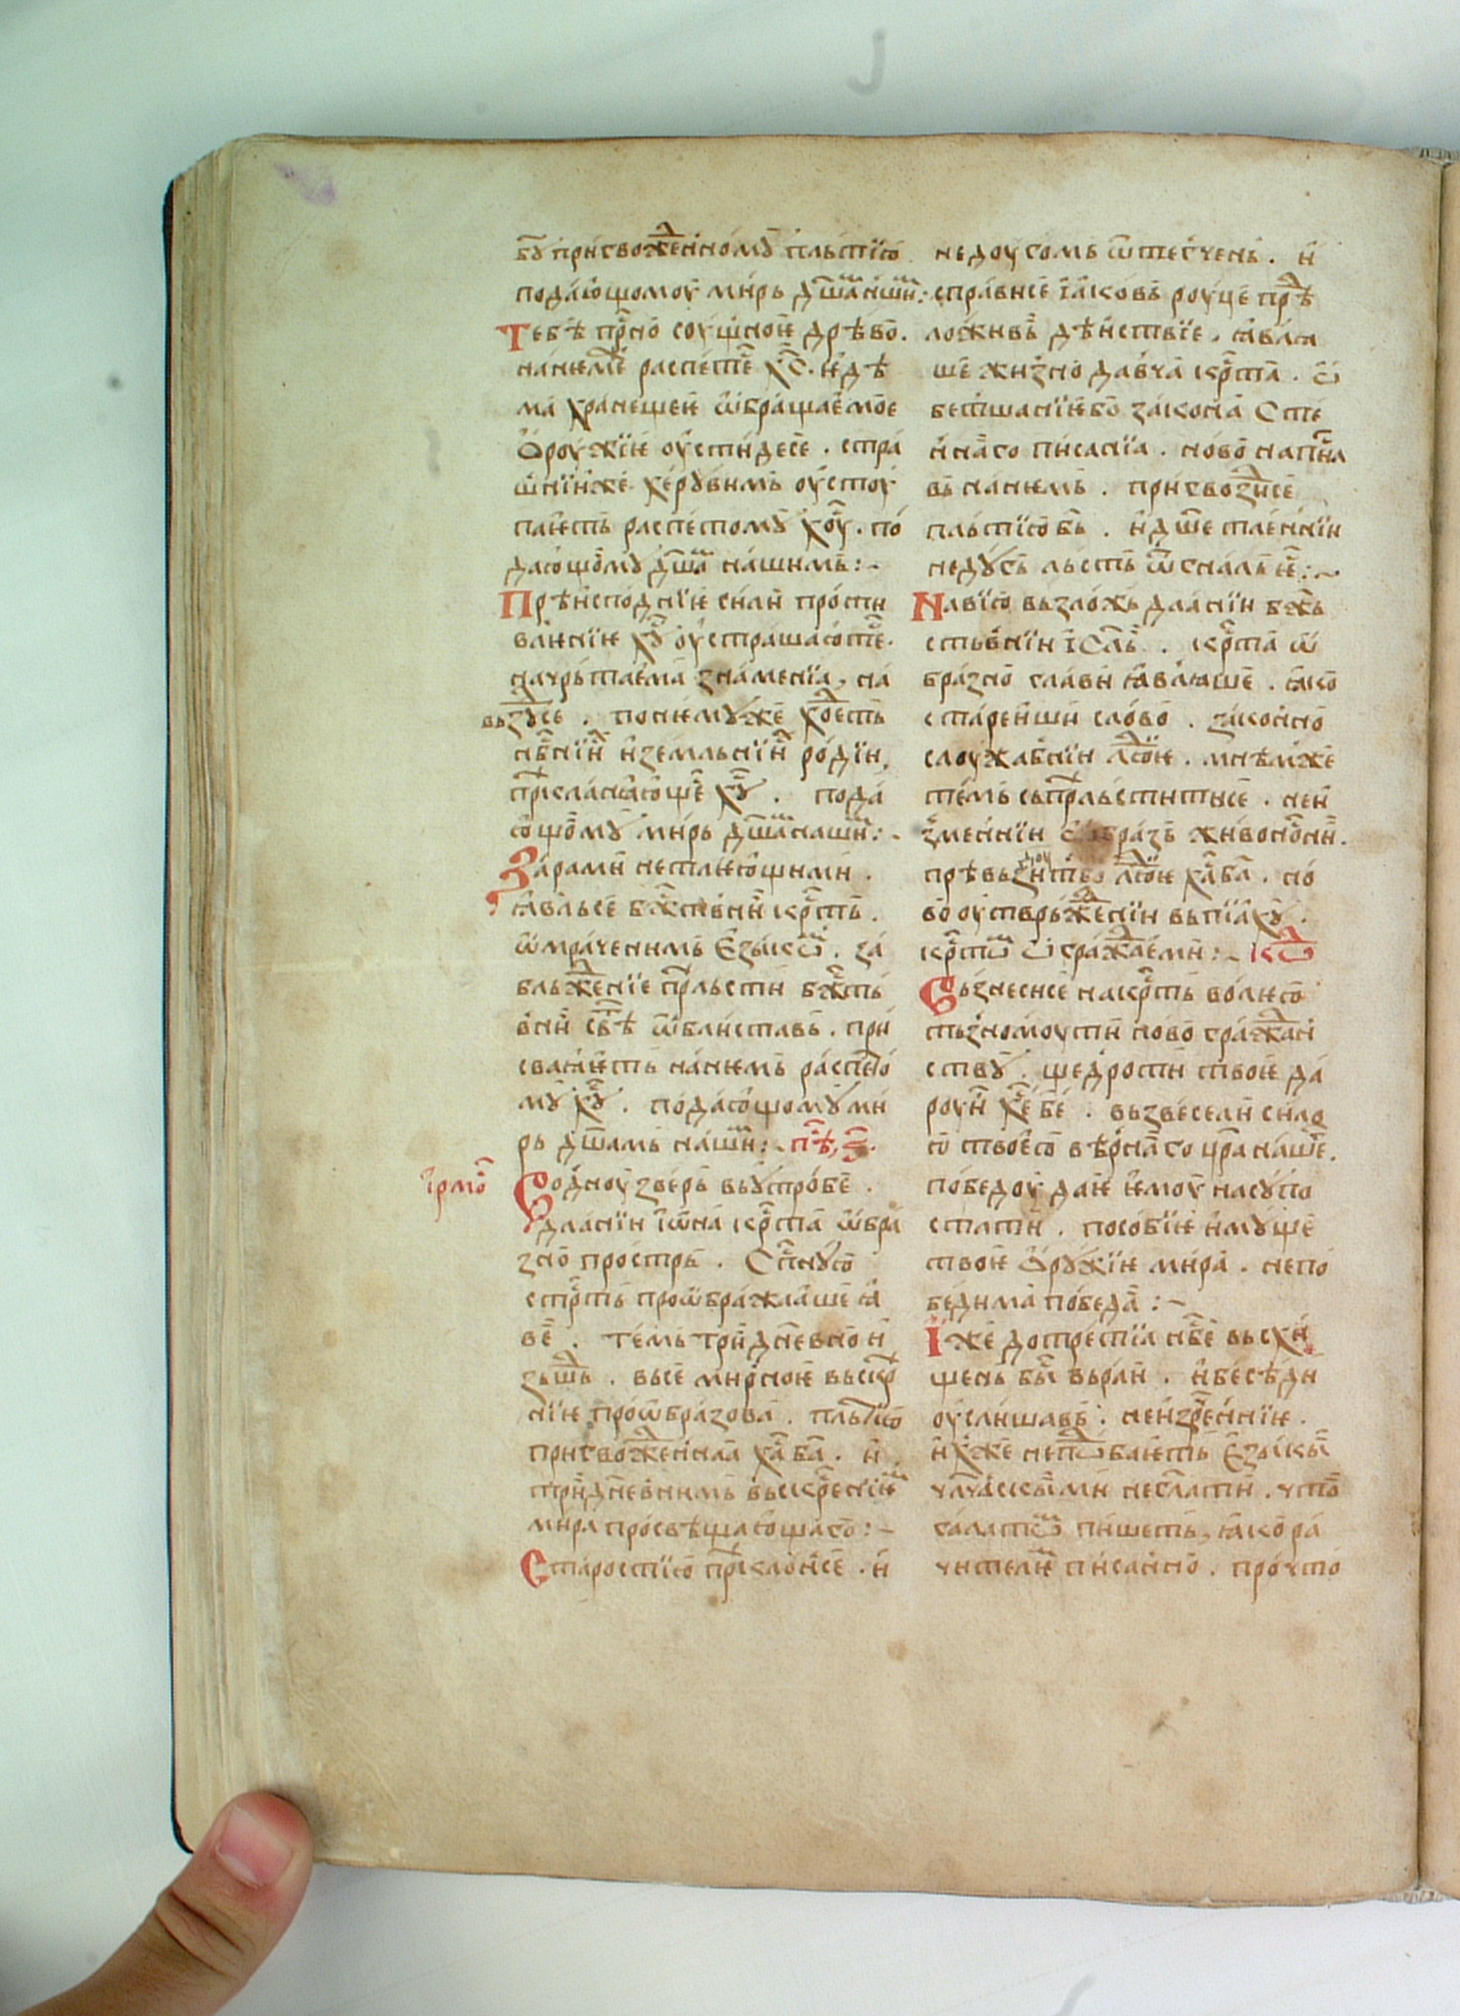 бꙋ пригвожденномꙋ пльтїю
подающомоу мирь дш҃ам нашим :
Тебѣ прⷭ҇но соущноѥ дрѣво .
на немже распетсе хⷭ҇ . ѥдѣ
ма хранещеи ѡбращаемое
ѡроужїѥ оустидесе . стра
шнїиже херꙋвимь оустоу
паѥть распетомꙋ хоу҃ . по
дающомꙋ дш҃амь нашимь :~
Прѣисподнїѥ сили проти
влѥнїѥ хꙋ҃ оустрашаютсе .
начрьтаема знаменїа , на
вьздꙋсе . по немꙋже ходеть
нбⷭ҇нїи и земльнїи родїи ,
прикланѧюще хꙋ҃ . пода
ющомꙋ мирь дш҃ам наши :~
Зарами нетлѥющими .
ꙗвльсе бжⷭ҇тьвни крⷭ҇ть .
ѡмраченимь Езыкѡм . за
блыжденїе прѣльсти бжⷭ҇ть
вни свѣть ѡблиставь . при
сваѧѥть на немь распето
мꙋ хꙋ҃ . подающомꙋ ми
рь дш҃амь наши : пѣ҃, ѕ҃.
їрмоⷭ
Водноу звѣрь вь ꙋтробе .
дланїи їѡна крⷭ҇та ѡбра
зно прострь . Спⷭ҇нꙋю
стрⷭ҇ть проѡбражлаше ꙗ
вѣ . темь три дневно и
зьшдь . высе мирноѥ выскрⷭ҇
нїѥ проѡбразова . пльтїю
пригвожденнаа ха҃ ба҃ . и
тридневнимь вьскрⷭ҇енїем
мира просвѣщающаго :~
Старостїю приклоньсе . и
недоугомь ѡтегчень . и
справисе їаковь роуце прѣ
ложивь дѣиствїе . ꙗвлꙗ
ше жизно давча крⷭ҇та . ѡ
бетшанїи бо закона Сте
ннаго писанїа . ново написа
вь на немь . пригвоздисе
пльтїю бь҃ . и дш҃е тленнїи
недꙋгь льсть ѡтгналь ѥⷭ :~
Навїю вьзложь дланїи бжⷭ҇ь
стьвнїи їслⷭ҇ь . крⷭ҇та ѡ
бразно глави ꙗвлꙗше . ꙗко
стареиши слово . законно
слоужавнїи людїѥ . мнѣмже
темь сьпрѣльститисе . неи
ꙁменнїи ѡбразь живоносни .
прѣвьзидоу бо людїѥ ха҃ ба҃ . но
во оутврьжденїи вьпїахꙋ .
крⷭ҇том ѡграждаеми :~ коⷣ
Вьзнесисе на крⷭ҇ть волѥю
тьзномоути ново гражан
ствꙋ . щедроти твоѥ да
роуи хе҃ бе҃ . вьзвесели сило
ю твоею вѣрнаго цр҃а наше .
победоу даѥ ѥмоу на сꙋпо
стати . пособїѥ имꙋще
твоѥ ѡрꙋжїѥ мира . непо
бедима победа :~
Їже до третїа нб҃е вьсхи
щень бы҃ вь раи . и беседи
оуслишавь . неизрⷣеннїѥ .
ихже неподобаѥть Езыкы
члчⷭ҇скыми неглагати . что
галатом пишеть , ꙗко ра
чителие писанно . прочто